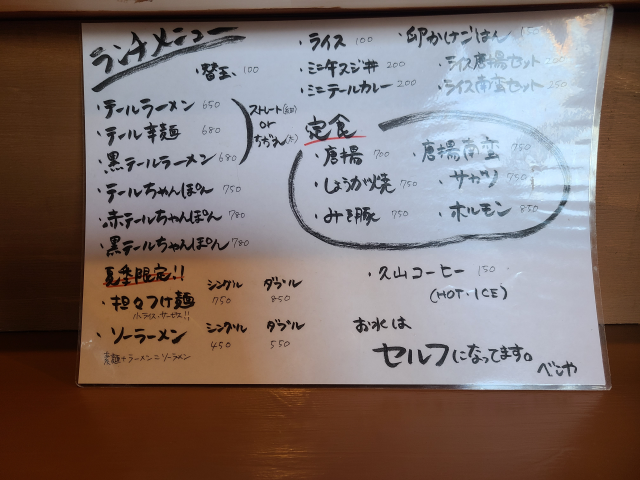 ランチメニュー
・替玉 100
・テールラーメン 650
・テール辛麺 680
・黒テールラーメン 680
ストレート(細)
or
ちぢれ(太)
・テールちゃんぽん 750
・赤テールちゃんぽん 780
・黒テールちゃんぽん 780
夏季限定!!
シングル ダブル
・担々つけ麺 750 850
小ライス・サービス!!
・ソーラーメン シングル ダブル
450 550
素麺+ラーメン=ソーラメン
・ライス 100
・卵かけごはん
・ミニ牛スジ丼 200
・ライス唐揚セット 200
・ミニテールカレー 200
・ライス南蛮セット 250
定食
・唐揚 700
・唐揚南蛮 750
・しょうが焼 750
・サガリ 750
・みそ豚 750
・ホルモン 850
・久山コーヒー 150
(HOT・ICE)
お水は
セルフになってます。
べこや